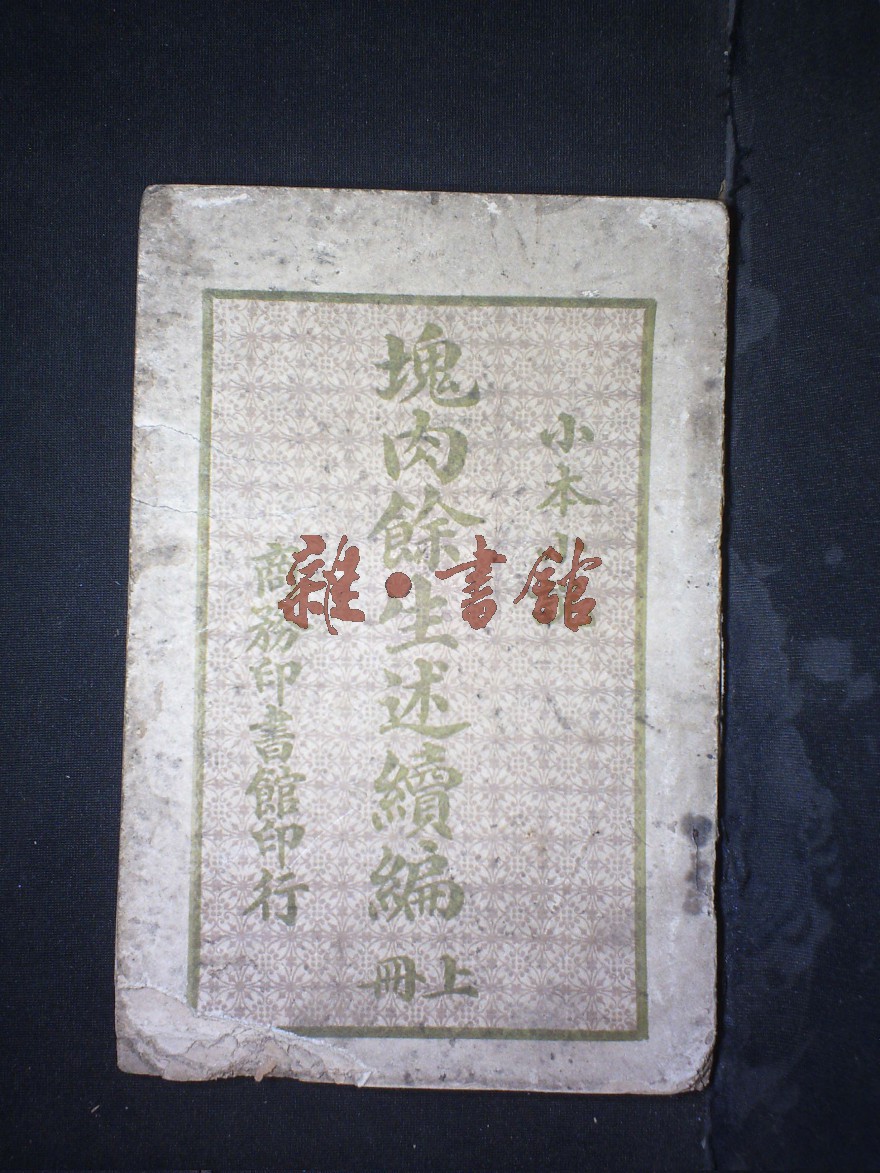 小本小說
塊肉餘生述續編
上冊
商務印書館印行
雜・書館